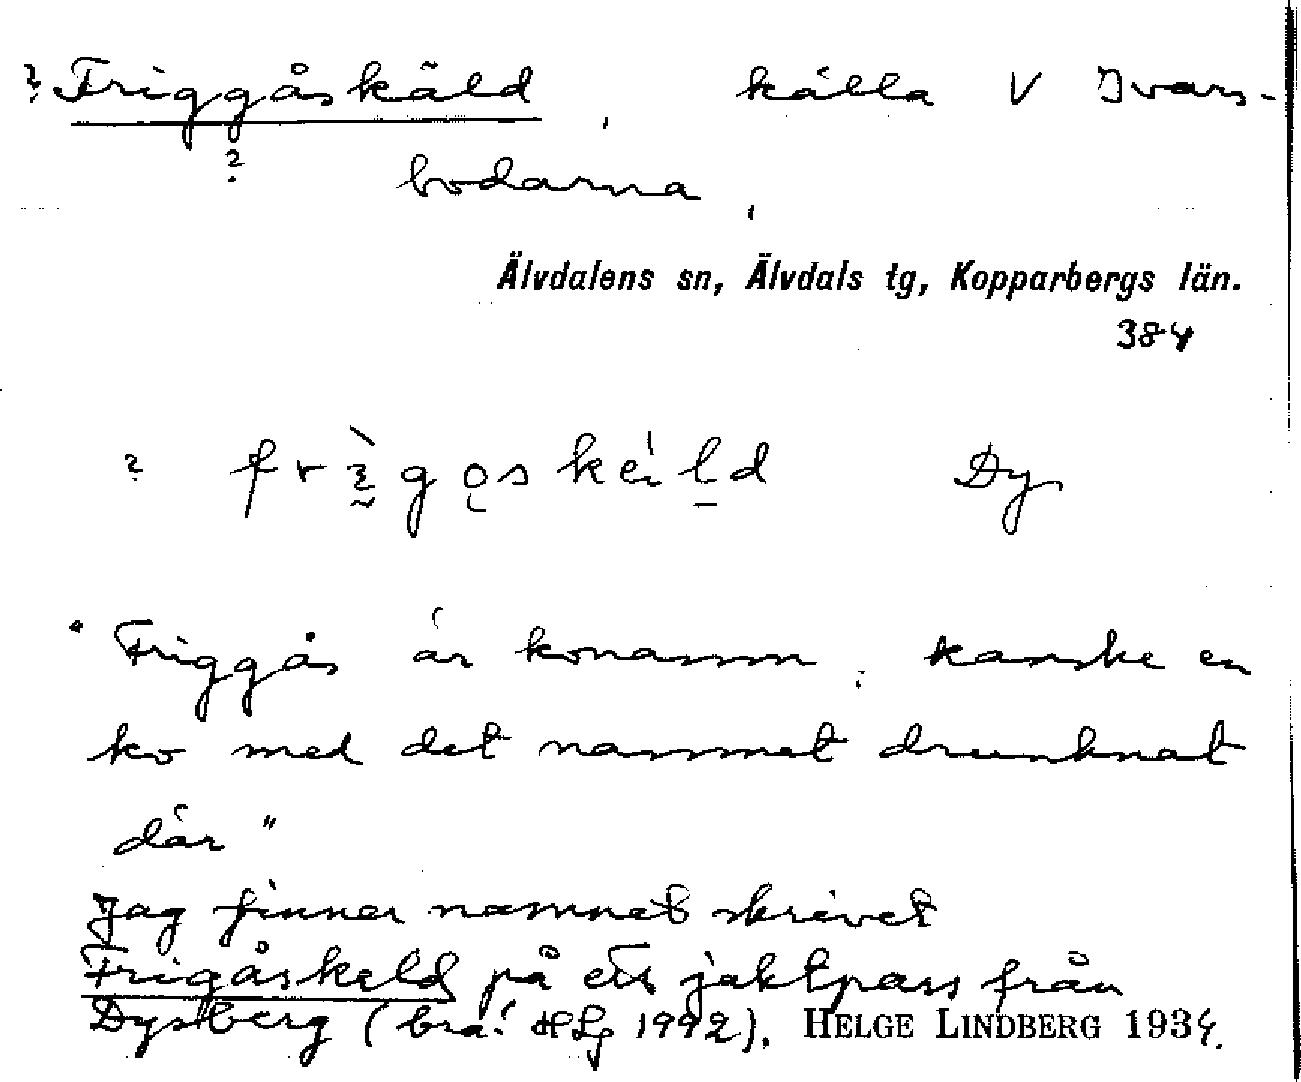 ? Friggåskäld, källa V Ivars-
?
bodarna,
Älvdalens sn, Älvdals tg, Kopparbergs län.
384
? Dy
"Friggås är konamn, kanske en
ko med det nammet drunknat
där"
Jag finner namnet skrivet
Frigåskeld på ett jaktpass från
Dysberg (bra! HLg 1992). HELGE LINDBERG 1934.